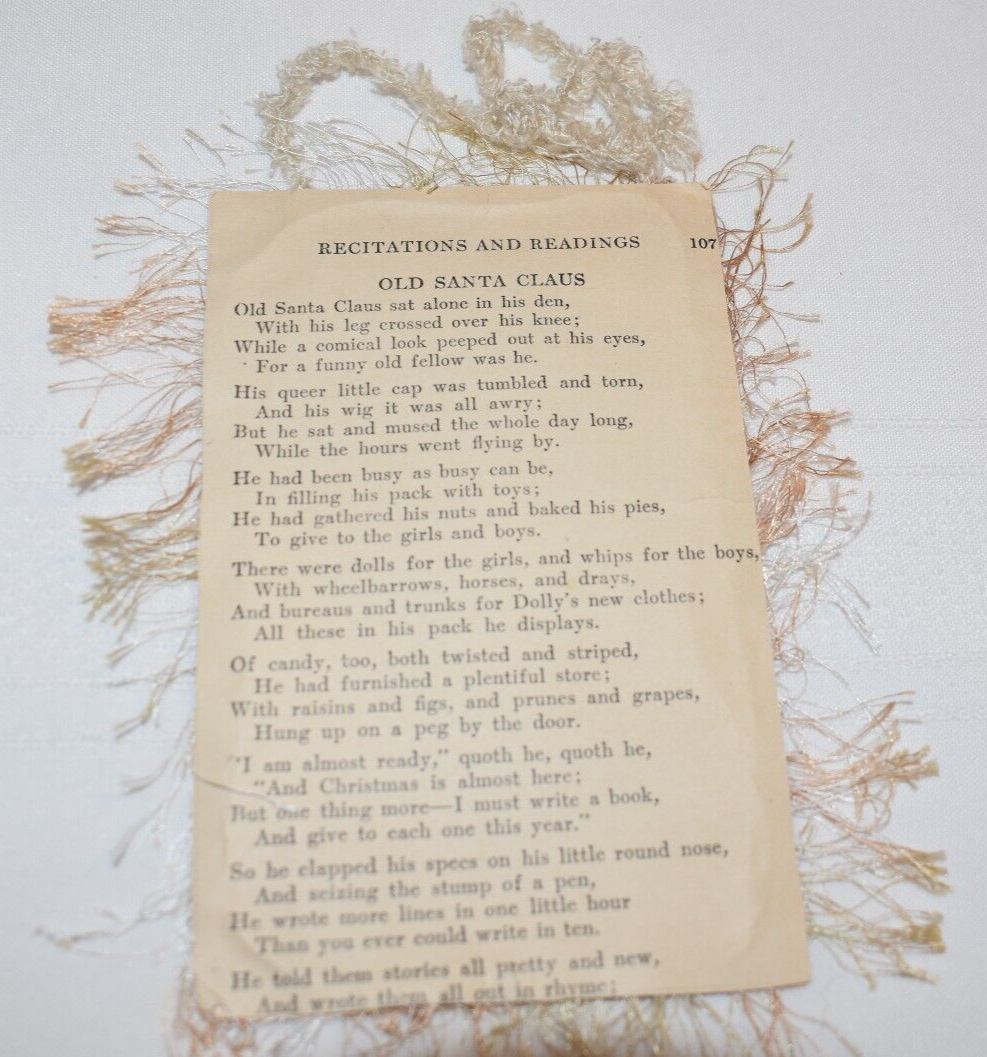 RECITATIONS AND READINGS 107
OLD SANTA CLAUS
Old Santa Claus sat alone in his den,
With his leg crossed over his knee;
While a comical look peeped out at his eyes,
For a funny old fellow was he.
His queer little cap was tumbled and torn,
And his wig it was all awry;
But he sat and mused the whole day long,
While the hours went flying by.
He had been busy as busy can be,
In filling his pack with toys;
He had gathered his nuts and baked his pies,
To give to the girls and boys.
There were dolls for the girls, and whips for the boys,
With wheelbarrows, horses, and drays,
And bureaus and trunks for Dolly's new clothes;
All these in his pack he displays.
Of candy, too, both twisted and striped,
He had furnished a plentiful store;
With raisins and figs, and prunes and grapes,
Hung up on a peg by the door.
"I am almost ready," quoth he, quoth he,
"And Christmas is almost here;
But one thing more—I must write a book,
And give to each one this year."
So he clapped his specs on his little round nose,
And seizing the stump of a pen,
He wrote more lines in one little hour
Than you ever could write in ten.
He told them stories all pretty and new,
And wrote them all out in rhyme;